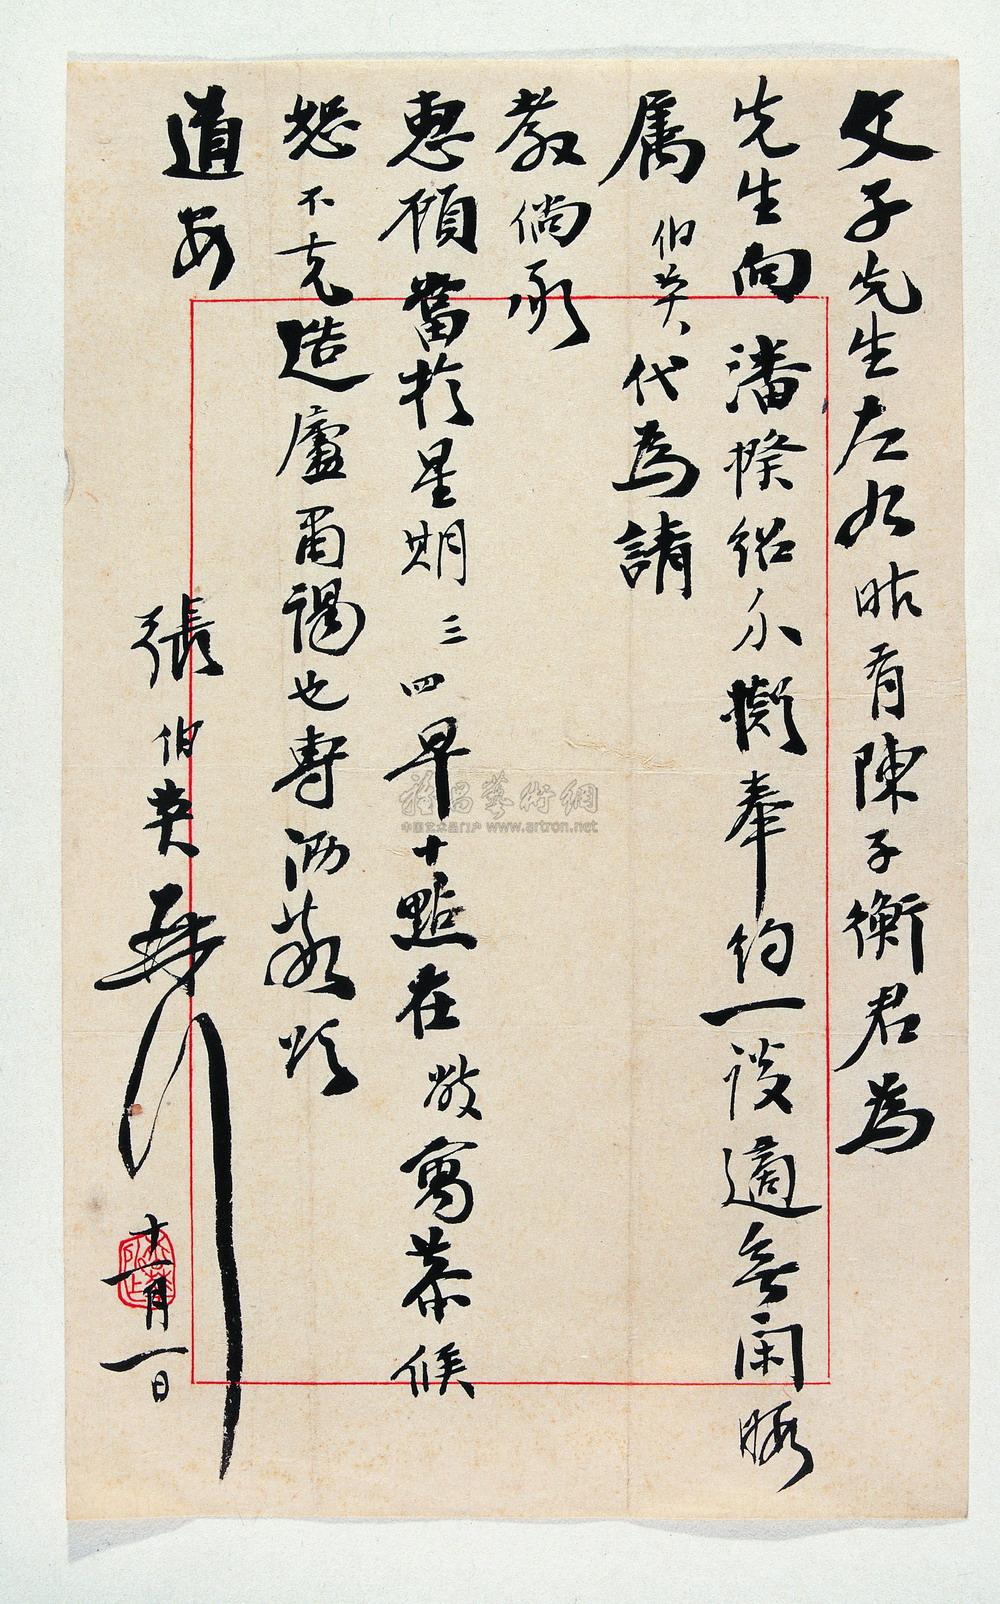 文子先生左右昨有陳子衡君為
先生向潘揆紹介擬奉約一談適無閑暇
属伯英代為請
教倘承
惠顧當於星期三四早十點在敝寓恭候
恕不克造廬面謁也專洒敬頌
道安
張伯英拜
十一月一日
雅昌藝術網
中国艺术品门户 www.artron.net